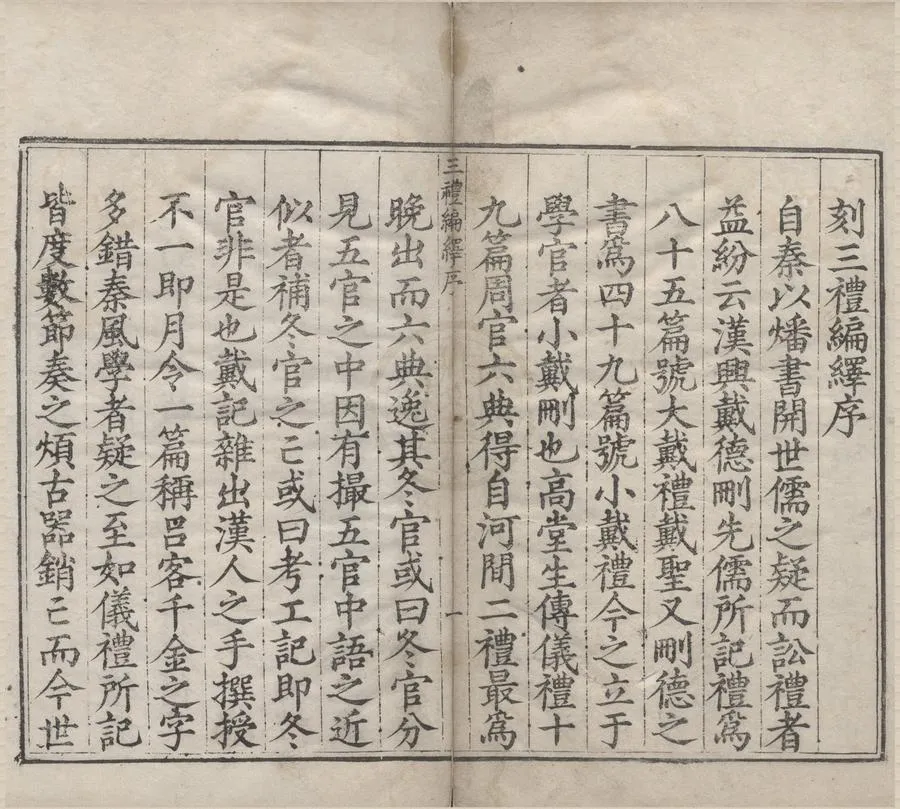 刻三禮編繹序
自秦以燔書開世儒之疑而訟禮者
益紛云漢興戴德刪先儒所記禮爲
八十五篇號大戴禮戴聖又刪德之
書爲四十九篇號小戴禮今之立于
學官者小戴刪也高堂生傳儀禮十
九篇周官六典得自河間二禮最爲
三禮編繹序
一
晚出而六典逸其冬官或曰冬官分
見五官之中因有撮五官中語之近
似者補冬官之亡或曰考工記即冬
官非是也戴記雜出漢人之手撰授
不一即月令一篇稱呂客千金之字
多錯秦風學者疑之至如儀禮所記
皆度數節奏之煩古器銷亡而今世